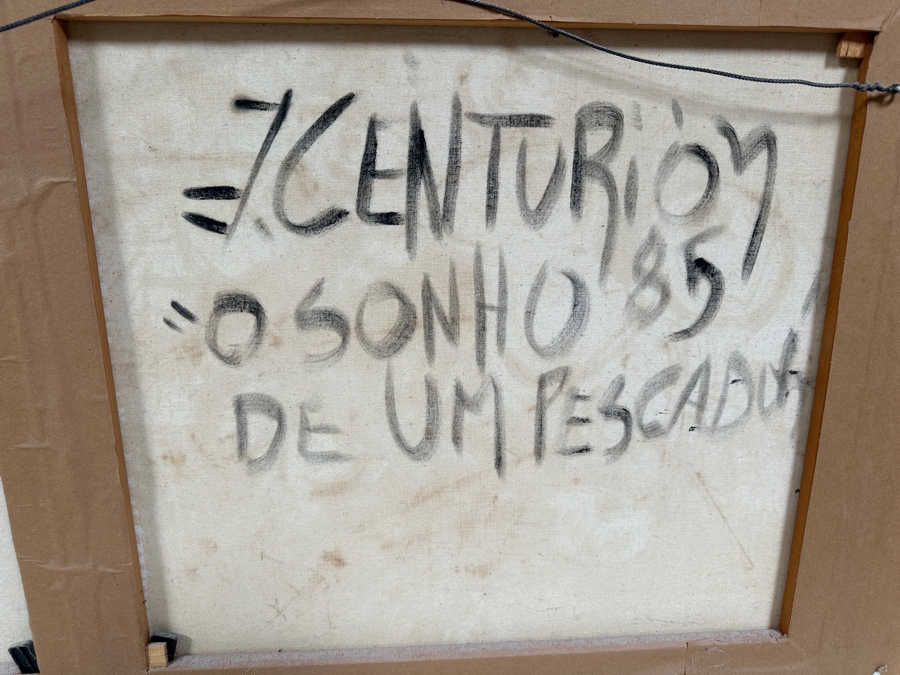 J. CENTURIÓN
85
"O SONHO
DE UM PESCADOR